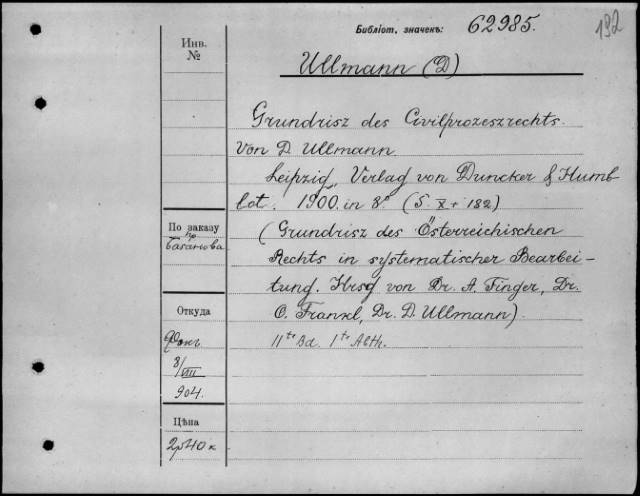 Библіот. значекъ: 62985.
192
Инв. №
Ullmann (D)
Grundrisz des Civilprozeszrechts.
Von D. Ullmann.
Leipzig, Verlag von Duncker & Humb
lot. 1900. in 8° (S. X + 182)
По заказу
пр
(Grundrisz des Österreichischen
Rechts in systematischer Bearbei-
tung. Hrsg von Dr. A. Finger, Dr.
O. Frankl, Dr. D. Ullmann)
Откуда
IIter Bd. Ite Abth.
8/VIII
904.
Цѣна
2р40к